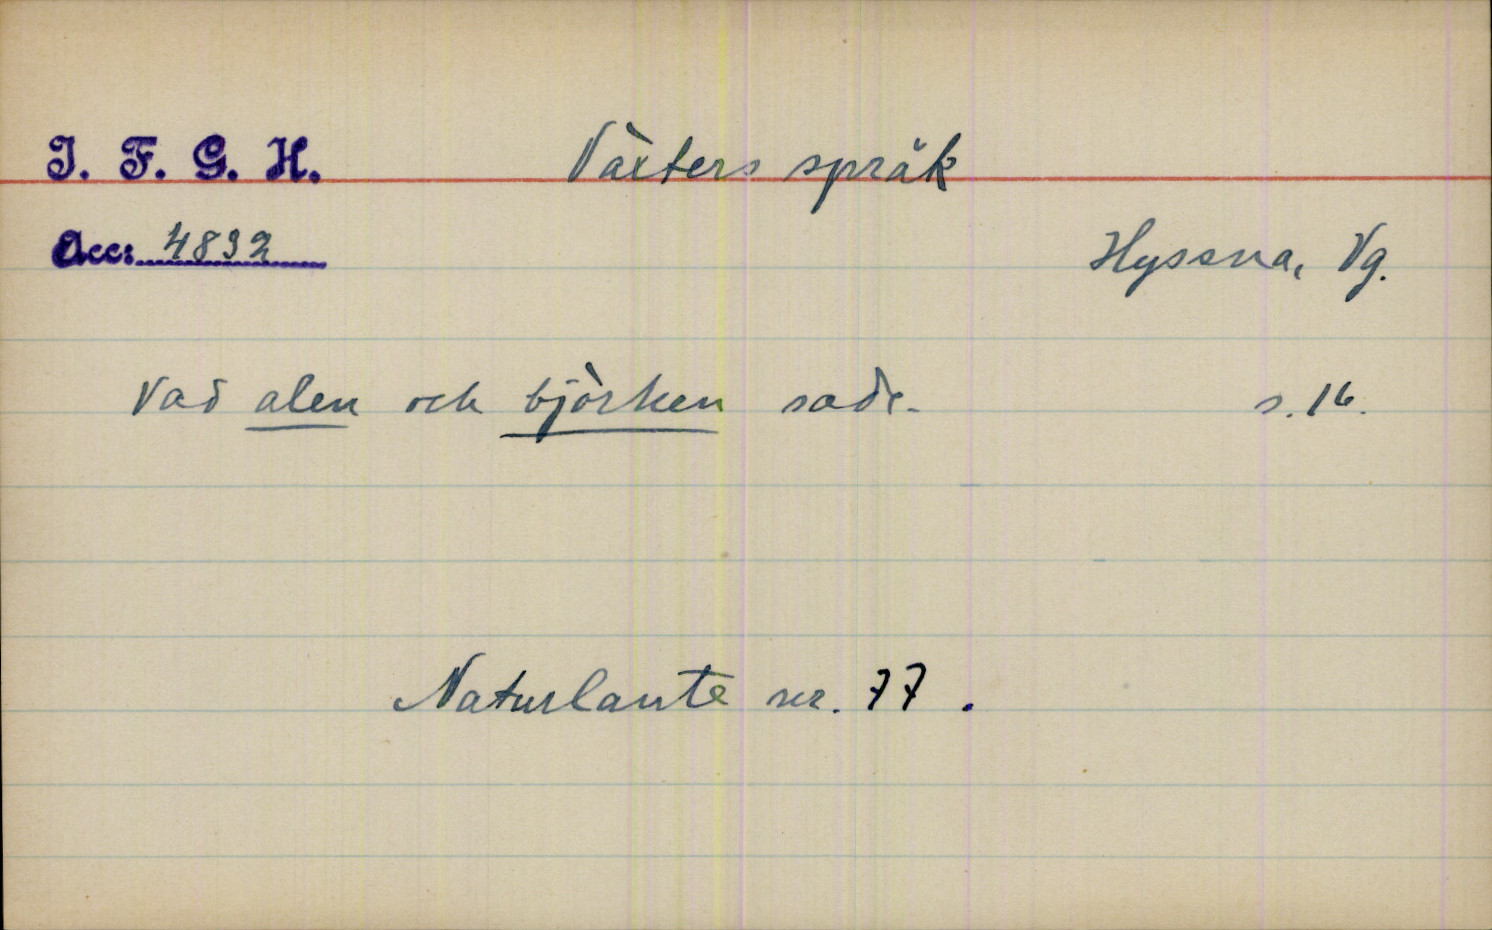 I. F. G. H. Växters språk
Acc: 4832 Hyssna, Vg.
Vad alen och björken sade. s. 16.
Naturlaute nr. 77.